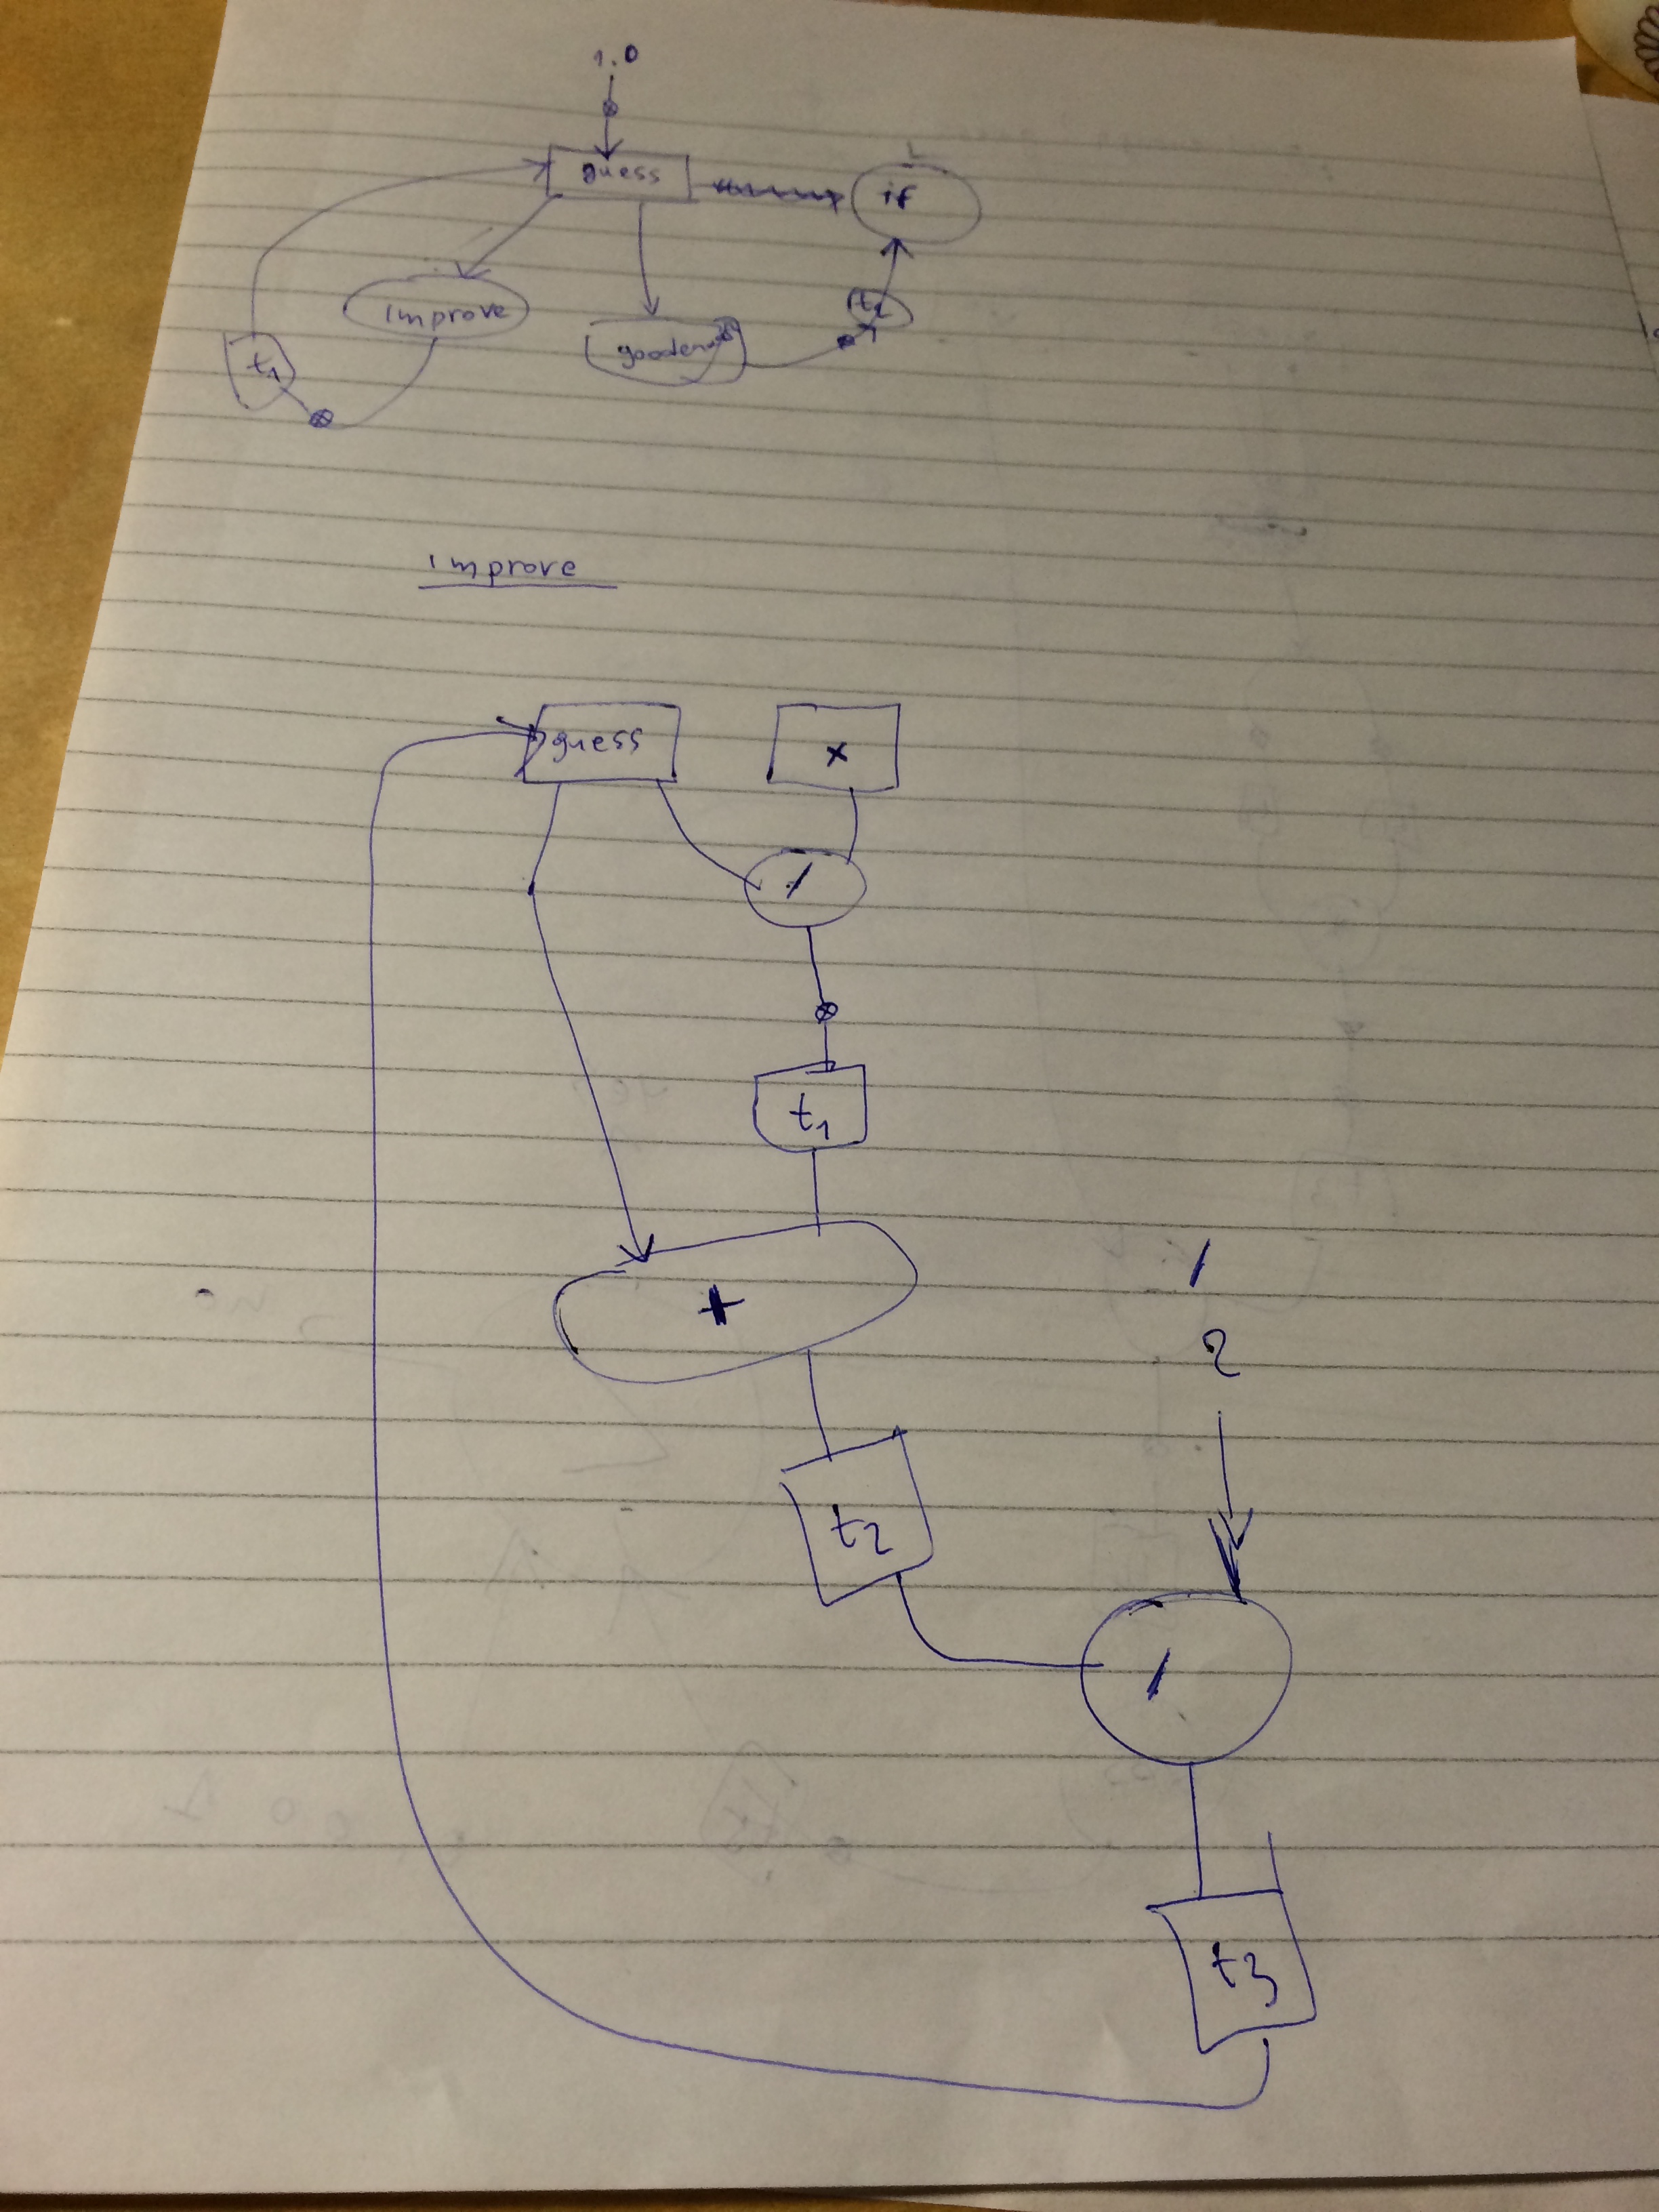 1.0
guess
if
improve
t2
goodenough
t1
improve
guess
x
/
t1
+
/
2
t2
/
t3